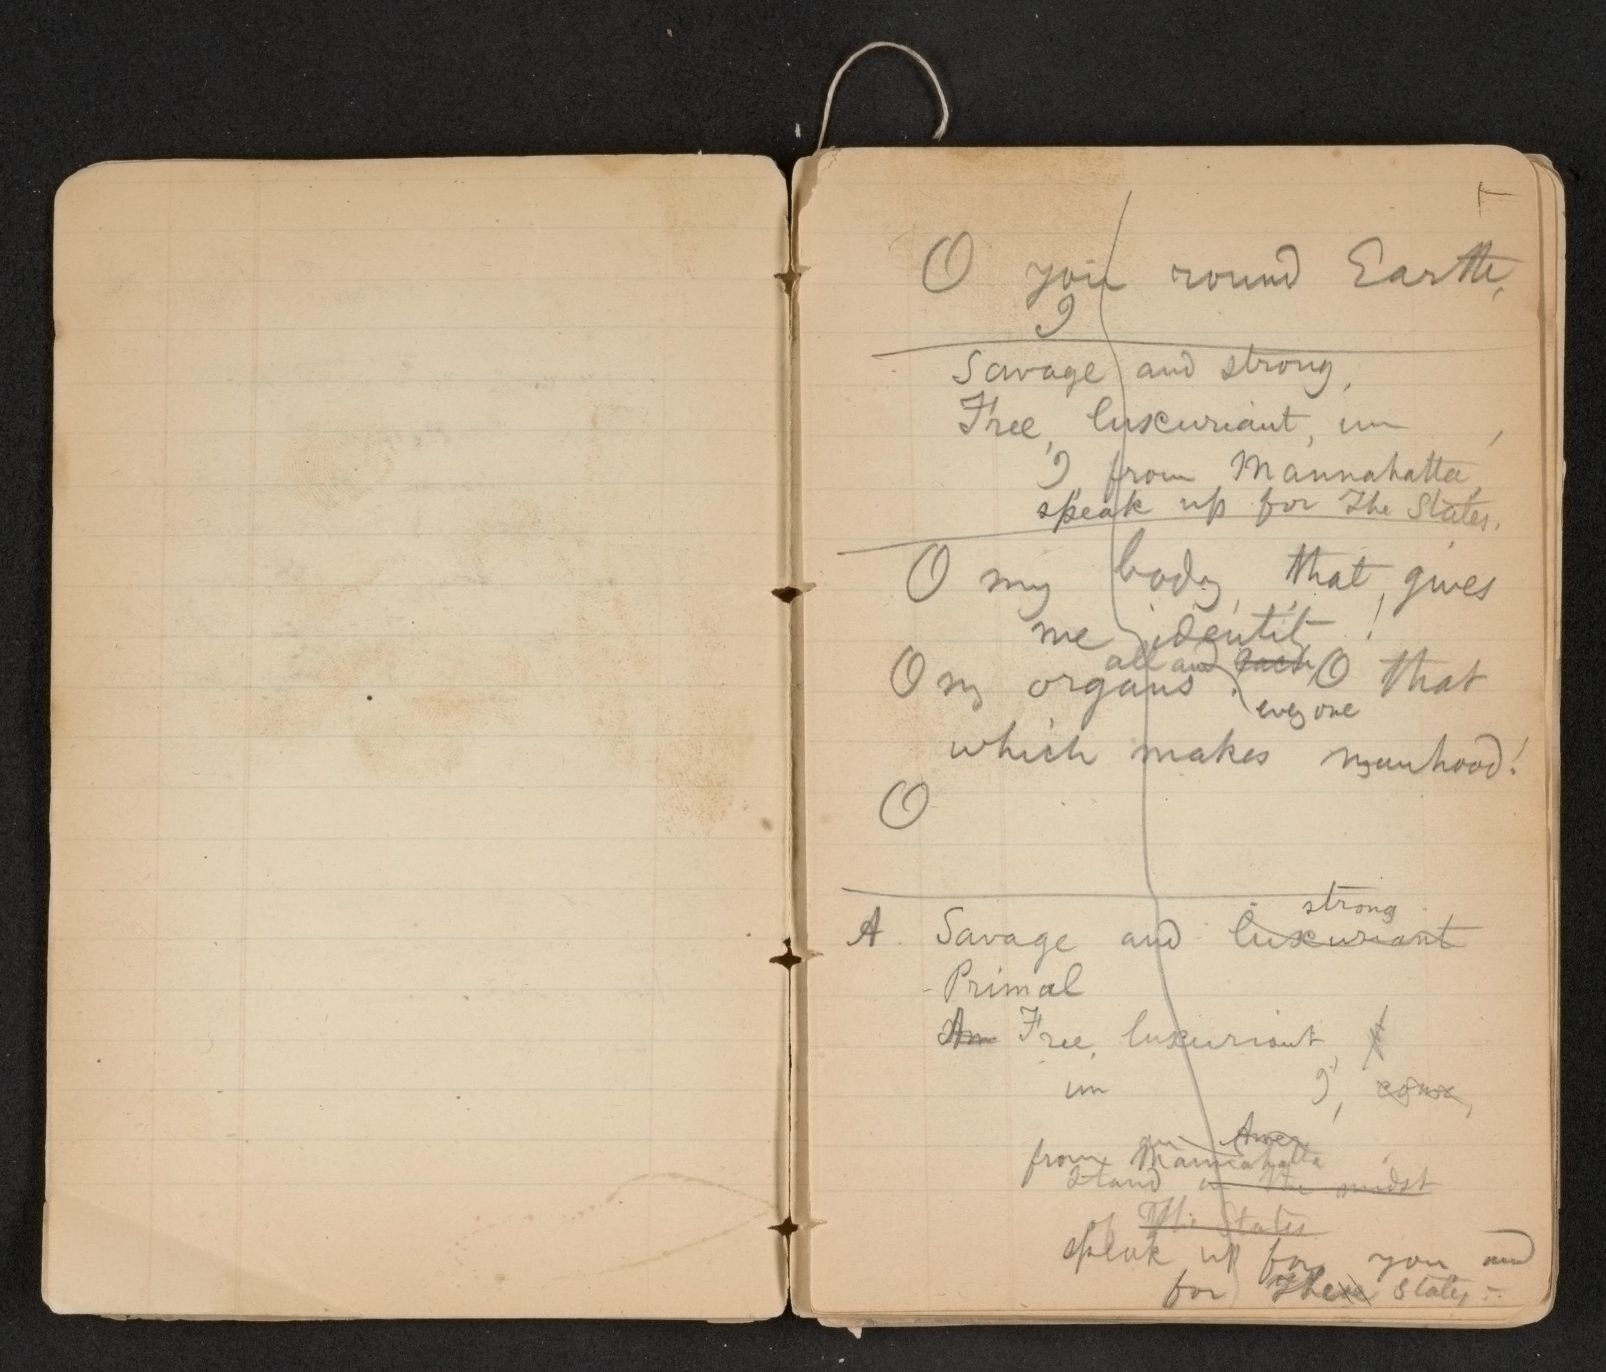 O you round Earth,
I
Savage and strong,
Free, luxuriant, in ,
I, from Mannahatta,
speak up for The States.
O my body, that, gives
me identity!
all and each
O my organs! O that
every one
which makes manhood!
O
strong
A Savage and luxuriant
Primal
Am Free, luxuriant,
in I, come,
Amer
from Mannahatta
Stand in the midst
of The States
speak up for you and
for These States.—